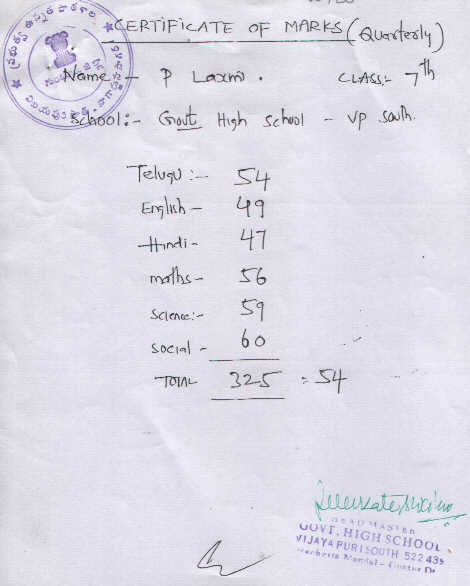 CERTIFICATE OF MARKS (Quarterly)
Name - P Laxmi. CLASS:- 7th
School:- Govt High School - VP South.
Telugu:- 54
English - 49
Hindi - 47
maths - 56
Science:- 59
Social - 60
TOTAL 325 = 54
HEAD MASTER
GOVT. HIGH SCHOOL
VIJAYAPURI SOUTH 522 439
Mandal - Guntur Dt